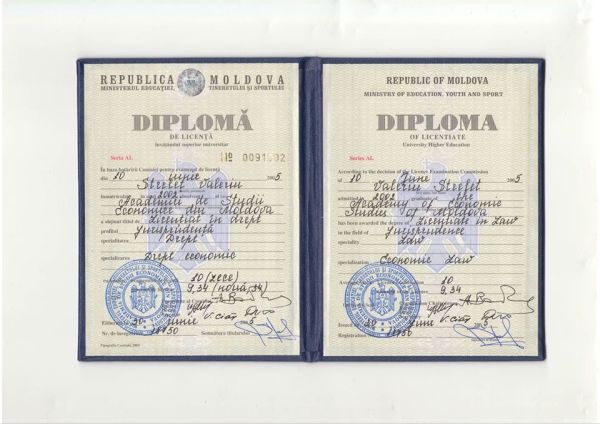 REPUBLICA MOLDOVA
MINISTERUL EDUCAŢIEI, TINERETULUI ŞI SPORTULUI
DIPLOMĂ
DE LICENŢĂ
învăţământul superior universitar
Seria AL Nº
În baza hotărârii Comisiei pentru examenul de licenţă
din 10 iunie 2005
Valeriu
înmatriculat 2002
Academia de Studii
Economice din Moldova
a obţinut titlul de Licenţiat în drept
profilul Jurisprudenţă
specialitatea Drept
specializarea Drept economic
10 (zece)
9,34 (nouă, 34)
Eliberată 20 iunie
Nr. de înregistrare
Semnătura titularului
REPUBLIC OF MOLDOVA
MINISTRY OF EDUCATION, YOUTH AND SPORT
DIPLOMA
OF LICENTIATE
University Higher Education
Series AL
According to the decision of the Licence Examination Commission
of 10 June 2005
Valeriu
admitted in 2002 graduate of the
Academy of Economic
Studies of Moldova
has been awarded the degree of Licentiate in Law
in the field of Jurisprudence
speciality Law
specialization Economic Law
10
9,34
Issued 20 June
Registration